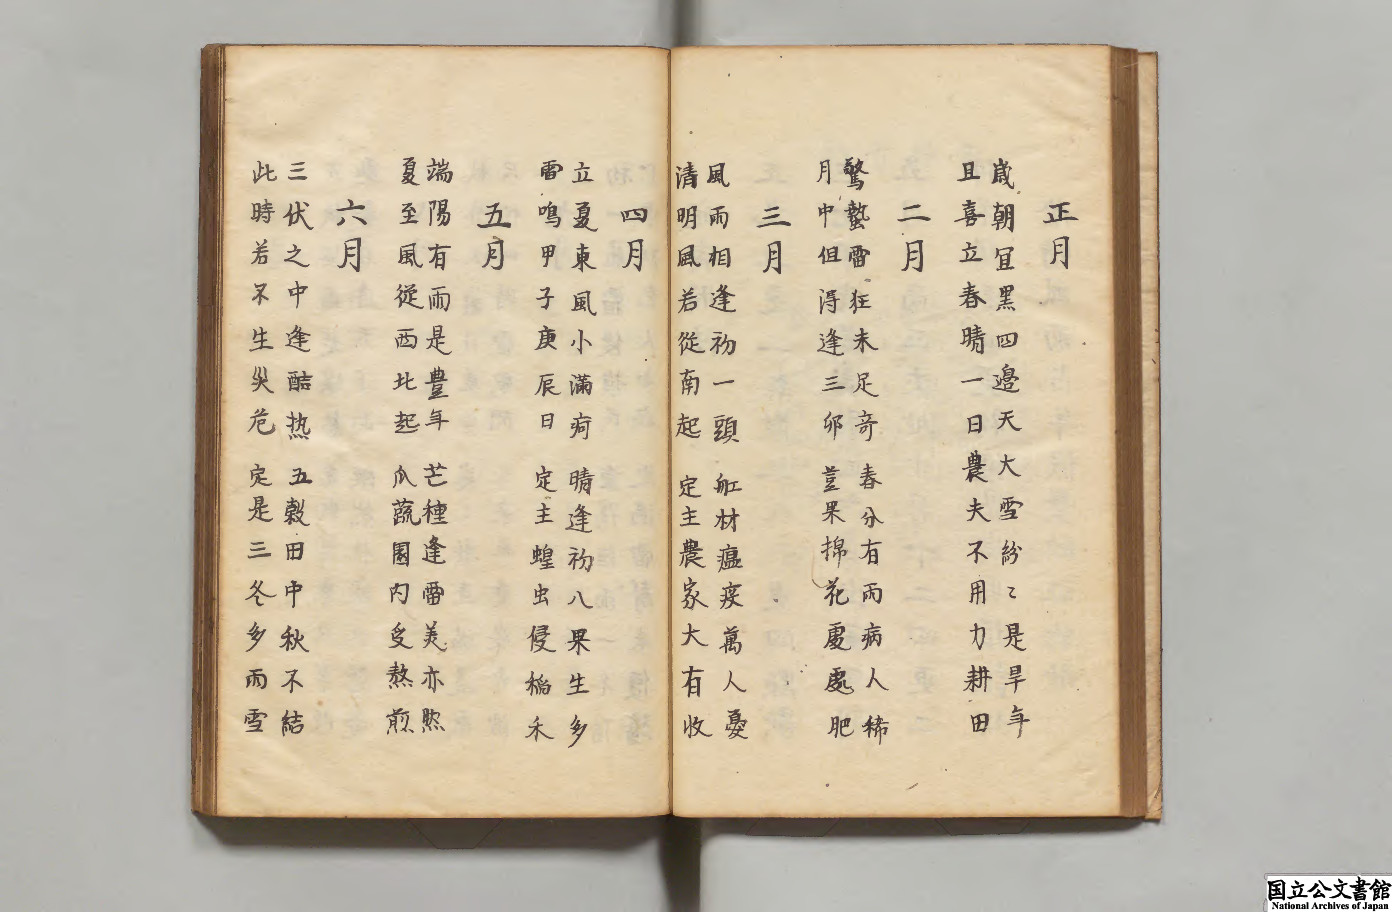 正月
歳朝宜黒四邉天 大雪紛〻是旱年
且喜立春晴一日 農夫不用力耕田
二月
驚蟄雷狂未足奇 春分有雨病人稀
月中但得逢三卯 荳果棉花處處肥
三月
風雨相逢初一頭 瘟疫萬人憂
清明風若從南起 定主農家大有收
四月
立夏東風小滿 晴逢初八果生多
雷鳴甲子庚辰日 定主蝗虫侵稲禾
五月
端陽有雨是豊年 芒種逢雷美亦然
夏至風從西北起 瓜蔬園内受熬煎
六月
三伏之中逢酷热 五穀田中秋不結
此時若不生災危 定是三冬多雨雪
国立公文書館
National Archives of Japan